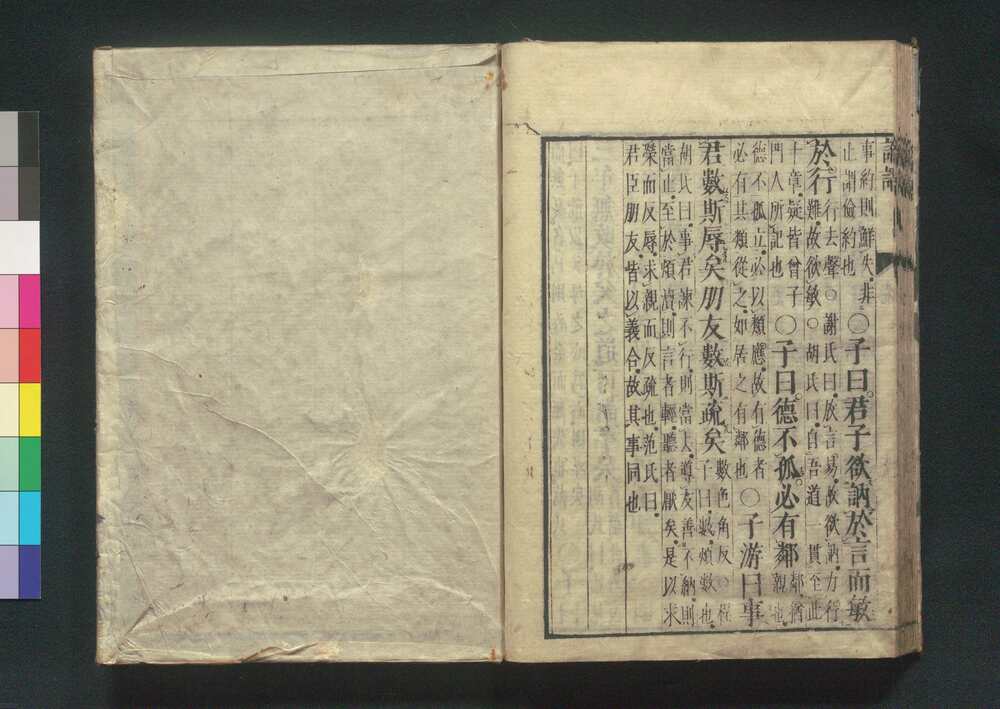 事約則鮮失非
止謂儉約也
○子曰君子欲訥於言而敏
於行
行去聲○謝氏曰放言易故欲訥力行
難故欲敏○胡氏曰自吾道一貫至此
十章疑皆曾子
門人所記也
○子曰德不孤必有鄰
鄰猶
親也
德不孤立必以類應故有德者
必有其類從之如居之有鄰也
○子游曰事
君數斯辱矣朋友數斯疏矣
數色角反○程
子曰數煩數也
胡氏曰事君諫不行則當去導友善不納則
當止至於煩瀆則言者輕聽者厭矣是以求
榮而反辱求親而反疏也范氏曰
君臣朋友皆以義合故其事同也